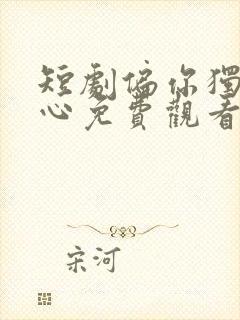 短劇偏你獨
心免費觀看
宋河